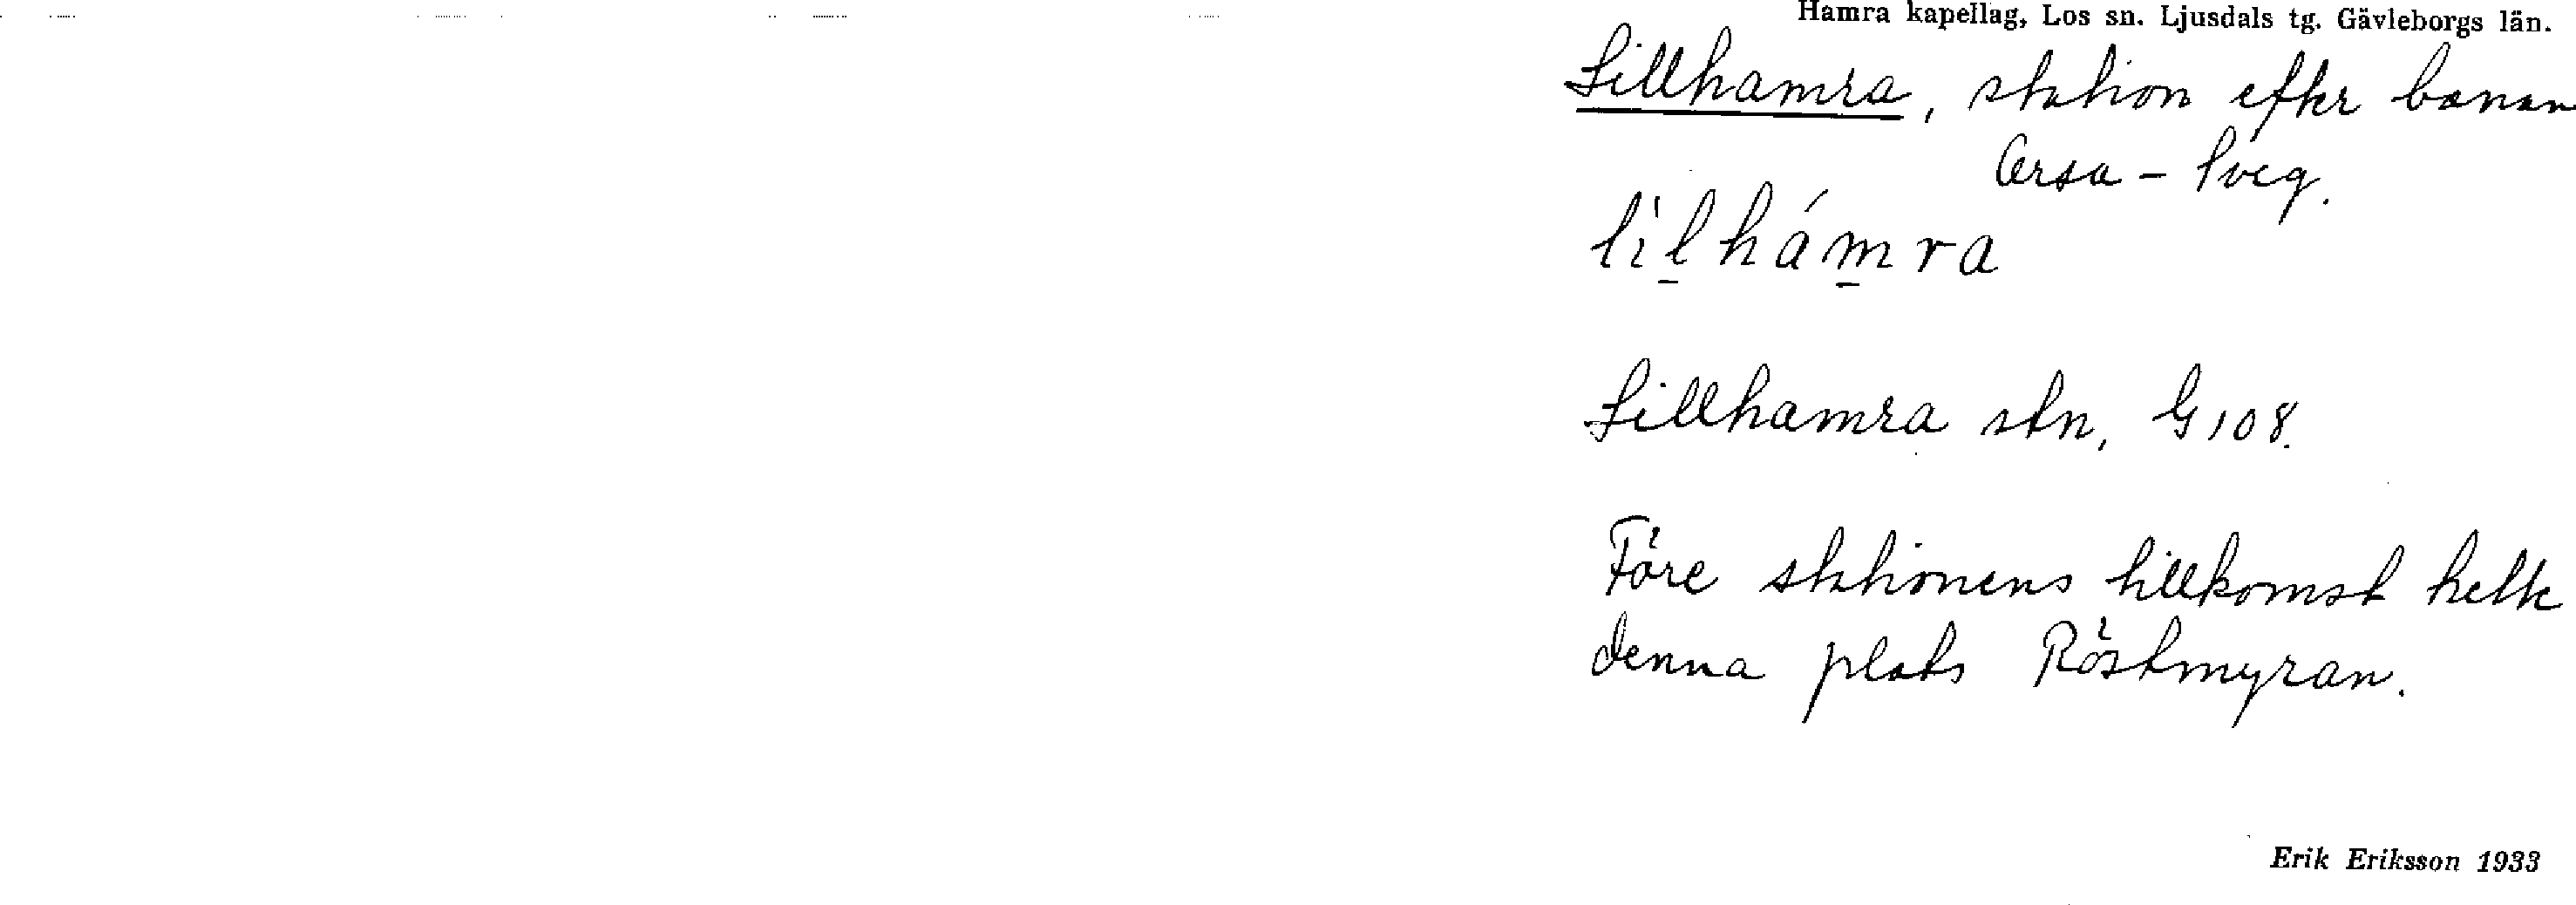 Hamra kapellag, Los sn. Ljusdals tg. Gävleborgs län.
Lillhamra, station efter banan
Orsa - Sveg.
lìlhámra
Lillhamra stn, G 108.
Före stationens tillkomst hette
denna plats Röstmyran.
Erik Eriksson 1933